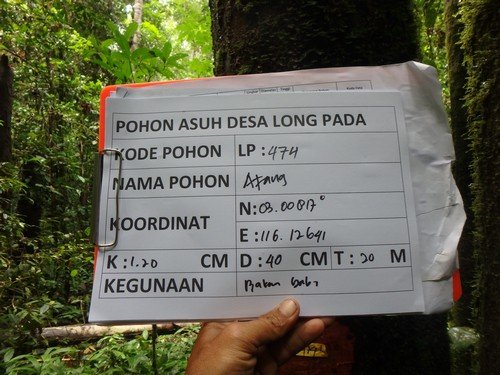 POHON ASUH DESA LONG PADA
KODE POHON LP : 474
NAMA POHON Afang
KOORDINAT N: 03.00817°
E : 116.12641
K : 1.20 CM D : 40 CM T : 20 M
KEGUNAAN Bakan babi